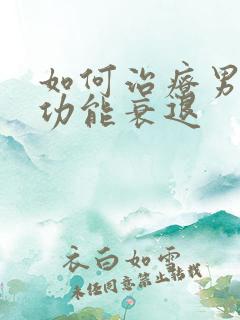 如何治疗男
功能衰退
衣白如雪
未经同意禁止转载